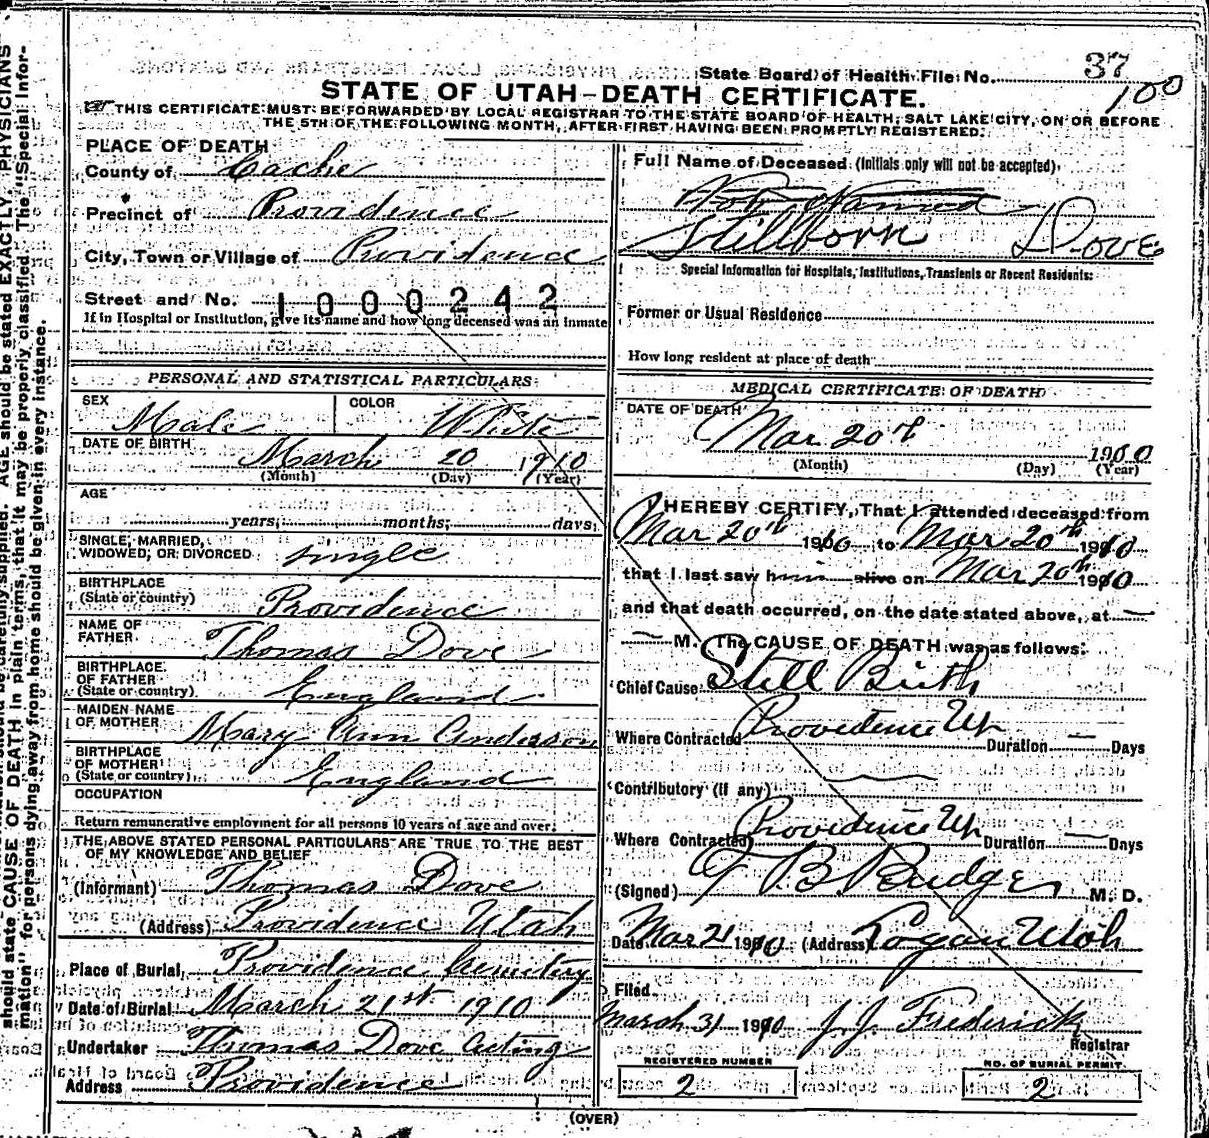 State Board of Health File No. 37
100
STATE OF UTAH—DEATH CERTIFICATE.
THIS CERTIFICATE MUST BE FORWARDED BY LOCAL REGISTRAR TO THE STATE BOARD OF HEALTH, SALT LAKE CITY, ON OR BEFORE
THE 5TH OF THE FOLLOWING MONTH, AFTER FIRST HAVING BEEN PROMPTLY REGISTERED.
PLACE OF DEATH
County of Cache
Precinct of Providence
City, Town or Village of Providence
Street and No. 1000242
If in Hospital or Institution, give its name and how long deceased was an inmate
PERSONAL AND STATISTICAL PARTICULARS
SEX Male COLOR White
DATE OF BIRTH March 20 1910
(Month) (Day) (Year)
AGE
years, months, days,
SINGLE, MARRIED,
WIDOWED, OR DIVORCED single
BIRTHPLACE
(State or country) Providence
NAME OF
FATHER Thomas Dove
BIRTHPLACE
OF FATHER
(State or country) England
MAIDEN NAME
OF MOTHER Mary Ann Anderson
BIRTHPLACE
OF MOTHER
(State or country) England
OCCUPATION
Return remunerative employment for all persons 10 years of age and over.
THE ABOVE STATED PERSONAL PARTICULARS ARE TRUE TO THE BEST
OF MY KNOWLEDGE AND BELIEF
(Informant) Thomas Dove
(Address) Providence Utah
Place of Burial, Providence Cemitery
Date of Burial March 21st 1910
Undertaker Thomas Dove Acting
Address Providence
Full Name of Deceased (Initials only will not be accepted)
Not Named
Stillborn Dove
Special Information for Hospitals, Institutions, Transients or Recent Residents:
Former or Usual Residence
How long resident at place of death
MEDICAL CERTIFICATE OF DEATH
DATE OF DEATH Mar 20th 1910
(Month) (Day) (Year)
I HEREBY CERTIFY, That I attended deceased from
Mar 20th 1910 to Mar 20th 1910
that I last saw him alive on Mar 20th 1910
and that death occurred, on the date stated above, at —
— M. The CAUSE OF DEATH was as follows:
Chief Cause Still Birth
Where Contracted Providence Ut Duration — Days
Contributory (if any)
Where Contracted Providence Ut Duration — Days
(Signed) T B Budge M. D.
Date Mar 21 1910 (Address) Logan Utah
Filed
March 31 1910 J. J. Frederick
Registrar
REGISTERED NUMBER
2
NO. OF BURIAL PERMIT
2
(OVER)
AGE should be stated EXACTLY. PHYSICIANS
should state CAUSE OF DEATH in plain terms, that it may be properly classified. The "Special Infor-
mation" for persons dying away from home should be given in every instance.